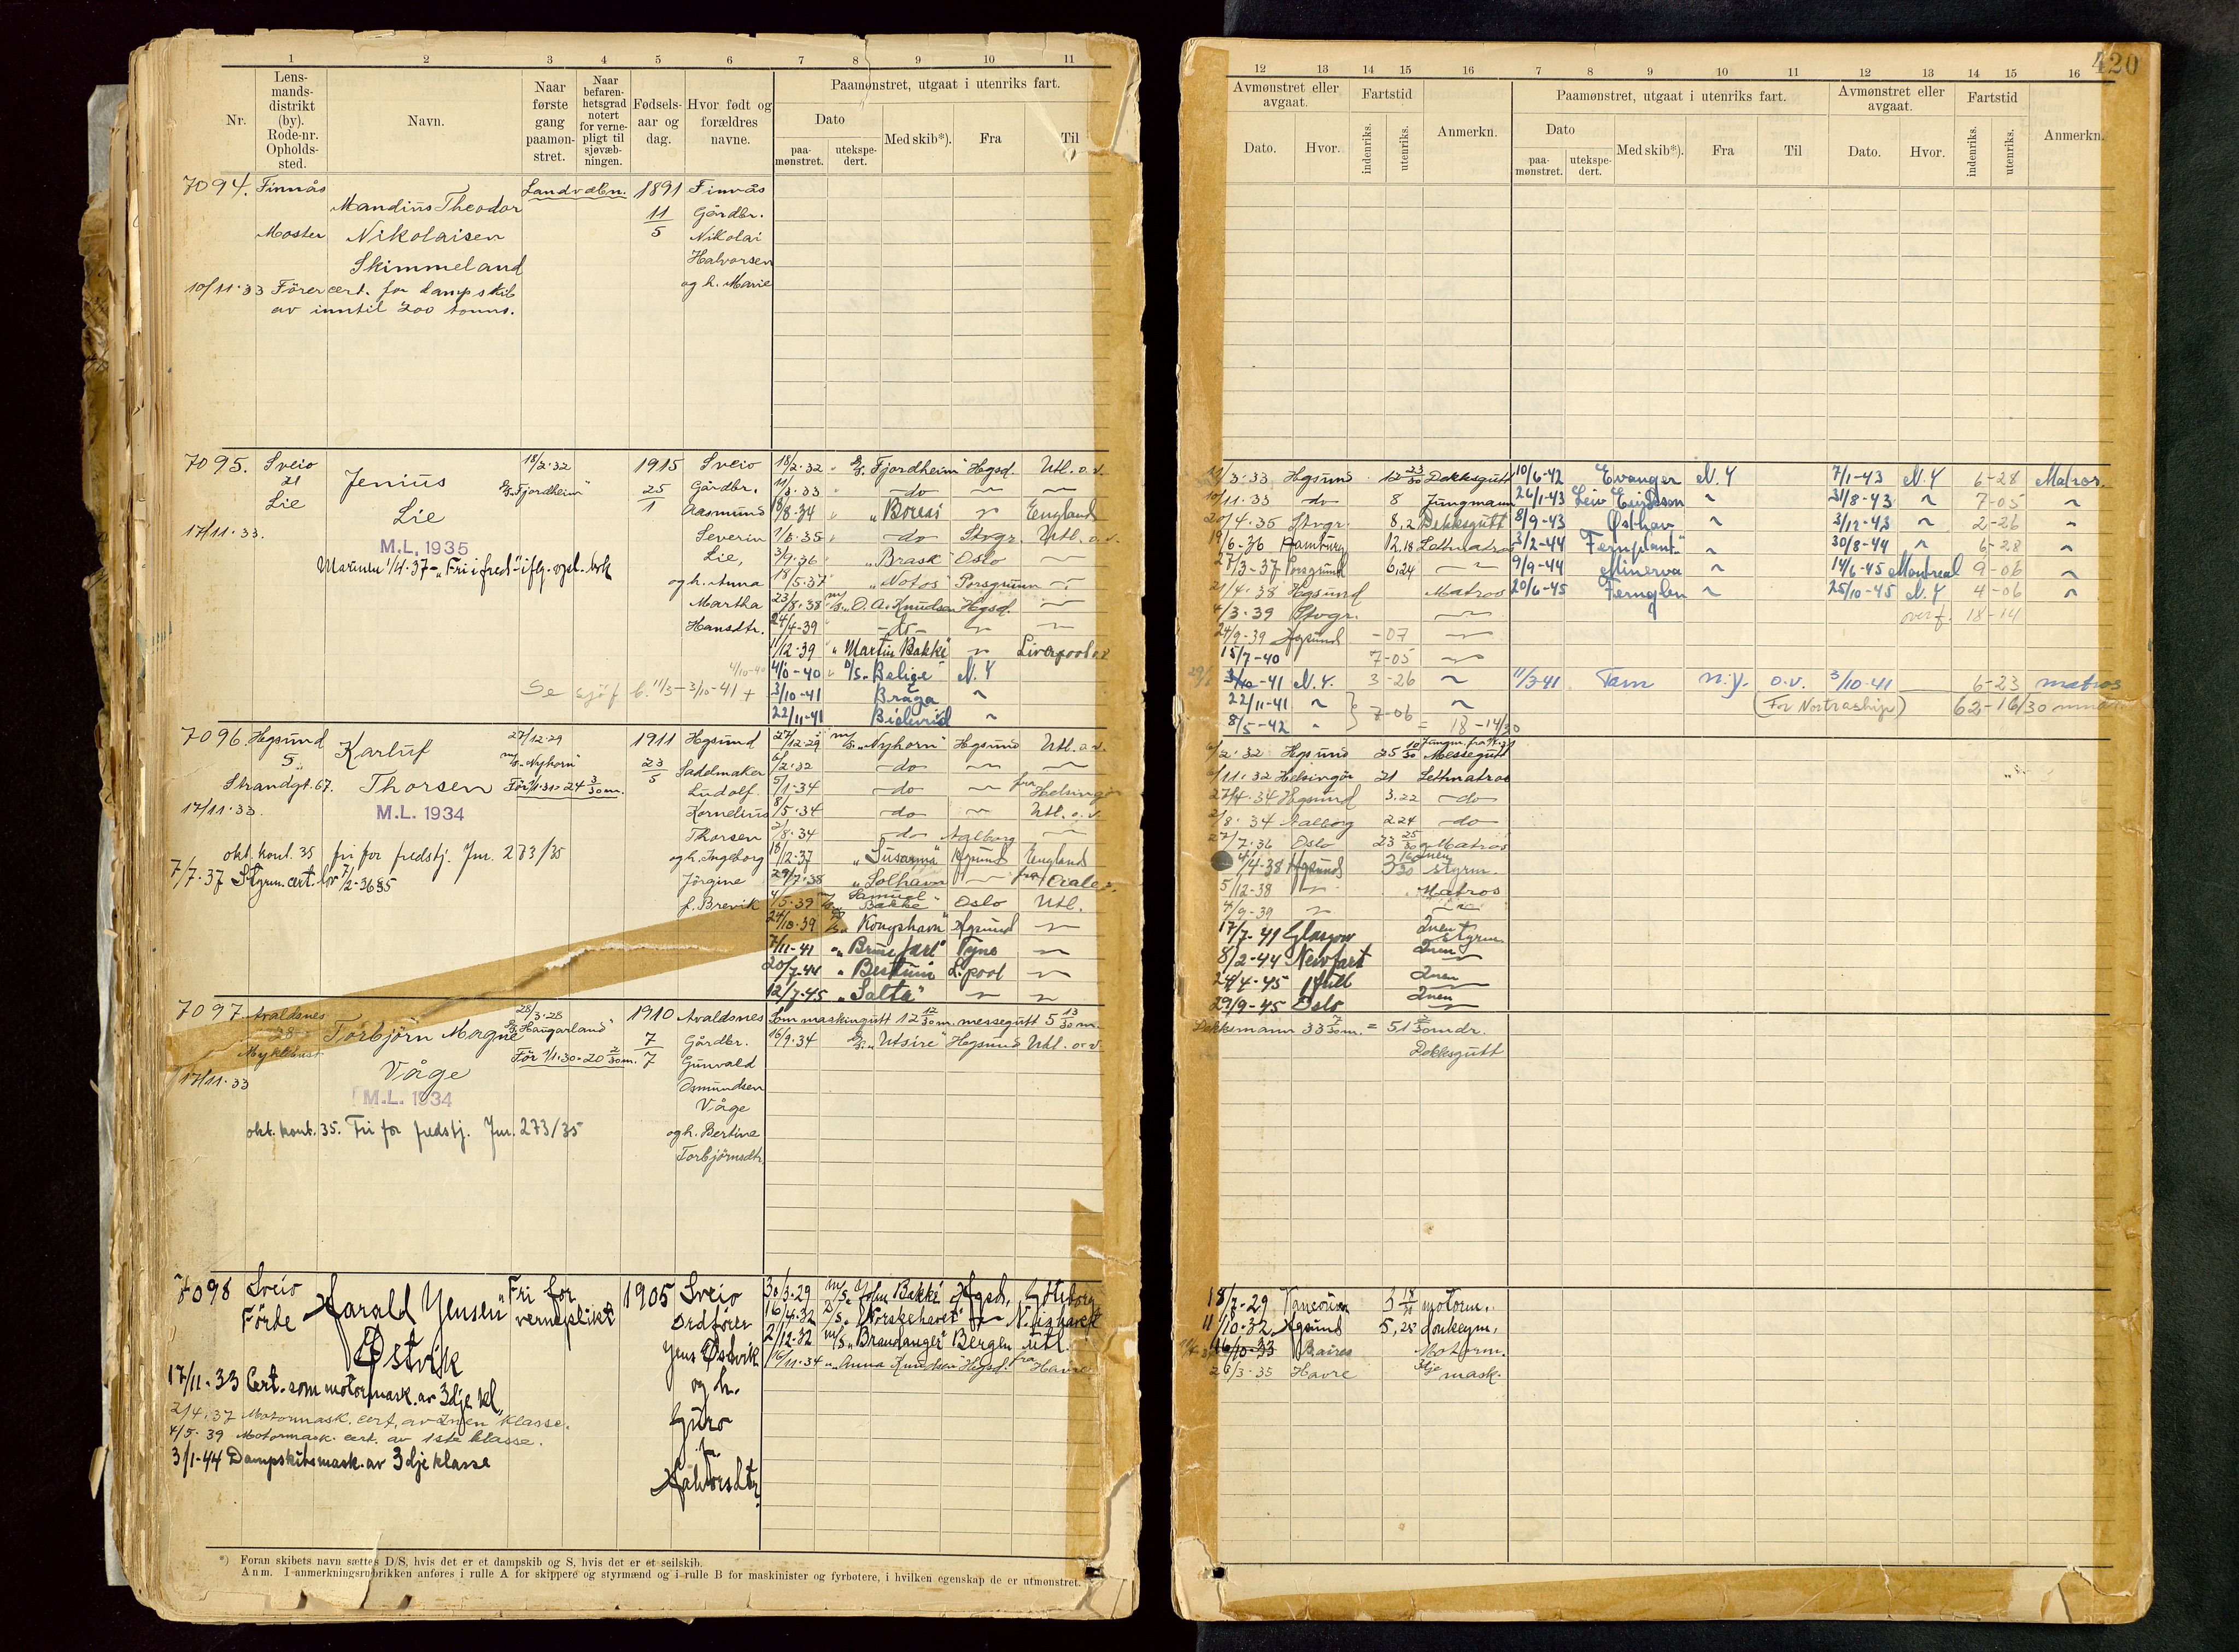 420
1 2 3 4 5 6 7 8 9 10 11
Nr.
Lens-
mands-
distrikt
(by).
Rode-nr.
Opholds-
sted.
Navn.
Naar
første
gang
paamøn-
stret.
Naar
befaren-
hetsgrad
notert
for verne-
pligt til
sjøvæb-
ningen.
Fødsels-
aar og
dag.
Hvor født og
forældres
navne.
Paamønstret, utgaat i utenriks fart.
Dato
paa-
mønstret.
utekspe-
dert.
Med skib*).
Fra
Til
7094. Finnås Landvæbn. 1891 Finnås
Mandius Theodor 11/5 Gårdbr.
Moster Nikolaisen Nikolai
Skimmeland Halvorsen
10/11.33 Förercert. for dampskib og h. Marie
av inntil 200 tonns.
7095. Sveio 18/2.32 1915 Sveio 18/2.32 Fjordheim Hgsd. Utl. o.v.
21 Jenius "Fjordheim" 25/1 Gårdbr. 11/3.33 do
Lie Lie Aasmund 10/8.34 "Boreas" England
17/11.33. Severin 1/5.35 do Stvgr. Utl. o.v.
M.L. 1935 Lie, 3/9.36 "Brask" Oslo
"Fri i fred" og h. Anna 18/5.37 "Notos" Porsgrunn
Martha 23/8.38 m/s. O. A. Knudsen Hgsd.
Hansdtr. 24/4-39 do
1/12.39 "Martin Bakke" Liverpool
4/10-40 D/S. Belize N.Y
3/10-41 Braga
22/11-41 Bidevind
7096. Hgsund 27/12.29 1911 Hgsund 27/12.29 m/s. "Nyhorn" Hgsund Utl. o.v.
5 Karluf "Nyhorn" 23/5 Sadelmaker 6/2.32 do
Strandgt. 67. Thorsen Ludolf 5/1.34 do fra Helsingör
17/11.33. M.L. 1934 Kornelius 8/5.34 do Utl. o.v.
Thorsen 2/8.34 do Aalborg
okt. kont. 35 fri for fredstj. Jnr. 273/35 og h. Ingeborg 18/12.37 "Susanna" Hgsund England
7/7.37 Styrm.cert. Jörgine 29/7.38 "Solhavn" fra
f. Brevik 4/5.39 Samuel Bakke Oslo Utl.
24/10.39 "Kongshavn" Hgsund
7/11-41 "Brunefart" Tyne
20/7-44 "Bestum" L.pool
12/7-45 "Salta"
7097. Avaldsnes 28/3.28 1910 Avaldsnes Som maskingutt 12 12/30 m. messegutt 5 13/30 m.
28 Torbjörn Magne "Haugarland" 7/7 Gårdbr. 16/9.34 "Utsire" Hgsund Utl. o.v.
Myklebust För 1/1.30 = 20 2/30 m. Gunvald
17/11.33 Våge Osmundsen
M.L. 1934 Våge
okt. kont. 35. Fri for fredstj. Jnr. 273/35 og h. Bertine
Torbjörnsdtr.
7098 Sveio Fri for 1905 Sveio 30/3.29 m/s. John Bakke Hgsd. Göteborg
Förde Harald Jensen vernepligt Ordförer 16/4.32 "Norskehavet" N. ishavet
Østvik Jens Østvik 2/12.32 m/s. "Brandanger" Bergen utl.
og h. 16/11.34 "Anna Knudsen" Hgsd. fra Havre
17/11.33 Cert. som motormask. av 3dje kl. Guro
2/4.37 Motormask. cert. av 2nen klasse.
4/5.39 Motormask. cert. av 1ste klasse.
3/1-44 Dampskibsmask. av 3dje klasse Halvorsdtr.
*) Foran skibets navn sættes D/S, hvis det er et dampskib og S, hvis det er et seilskib.
Anm. I anmerkningsrubrikken anføres i rulle A for skippere og styrmænd og i rulle B for maskinister og fyrbøtere, i hvilken egenskap de er utmønstret.
12 13 14 15 16 7 8 9 10 11 12 13 14 15 16
Avmønstret eller
avgaat.
Fartstid
Dato. Hvor. indenriks. utenriks. Anmerkn.
Paamønstret, utgaat i utenriks fart.
Dato
paa-
mønstret.
utekspe-
dert.
Med skib*). Fra Til
Avmønstret eller
avgaat.
Fartstid
Dato. Hvor. indenriks. utenriks. Anmerkn.
11/3.33 Hgsund 12 23/30 Dekksgutt 10/6-42 Evanger N.Y 7/1-43 N.Y 6-28 Matros.
10/11.33 do 8 Jungmann 26/1-43 Leiv Eiriksson 31/8-43 7-05
20/4.35 Stvgr. 8,2 Dekksgutt 8/9-43 Østhav 3/12-43 2-26
19/6-36 Hamburg 12,18 Lettmatros 3/2-44 Fernplant 30/8-44 6-28
Porsgrund 6,24 9/9-44 Minerva 14/6-45 Montreal 9-06
21/4.38 Hgsund Matros 20/6-45 Fernglen 25/10-45 N.Y 4-06
4/3.39 Stvgr. overf. 18-14
24/9-39 Hgsund -07
15/7-40 7-05
-41 N.Y. 3-26 11/3-41 Tam n.y. o.v. 3/10-41 6-23 matros
22/11-41 7-06 (For Nortraship) 62-16/30
8/5-42 = 18-14/30
6/2.32 Hgsund 25 10/30 Messegutt
6/11.32 Helsingör 21 Lettmatros
27/4.34 Hgsund 3.22 do
2/8.34 Aalborg 2.24 do
27/7.36 Oslo 23 25/30 Matros
4/4-38 Hgsund styrm.
5/12-38 Matros
4/9-39
17/7-41 Glasgow 2nen styrm.
8/2-44 Newport 2nen
24/4-45 Hull 2nen
29/9-45 Oslo 2nen
Dekksmann 33 7/30 m. = 51 2/30 mdr.
Dekksgutt
18/7-29 Vancouver 3 motorm.
11/10.32 Hgsund 5,25 donkeym.
16/10-33 B.aires Motorm.
26/3.35 Havre 3dje mask.